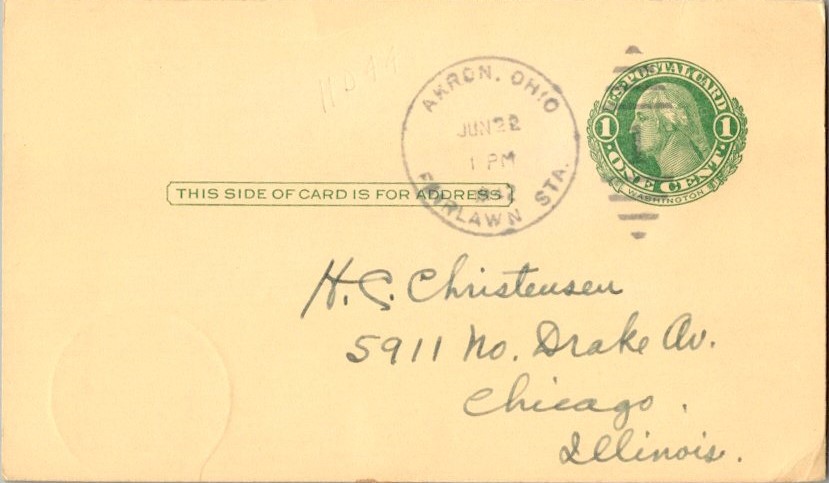 AKRON, OHIO
JUN 22
1 PM
FAIRLAWN STA.
U.S. POSTAL CARD
1 1
ONE CENT
WASHINGTON
THIS SIDE OF CARD IS FOR ADDRESS
H. C. Christensen
5911 No. Drake Av.
Chicago.
Illinois.